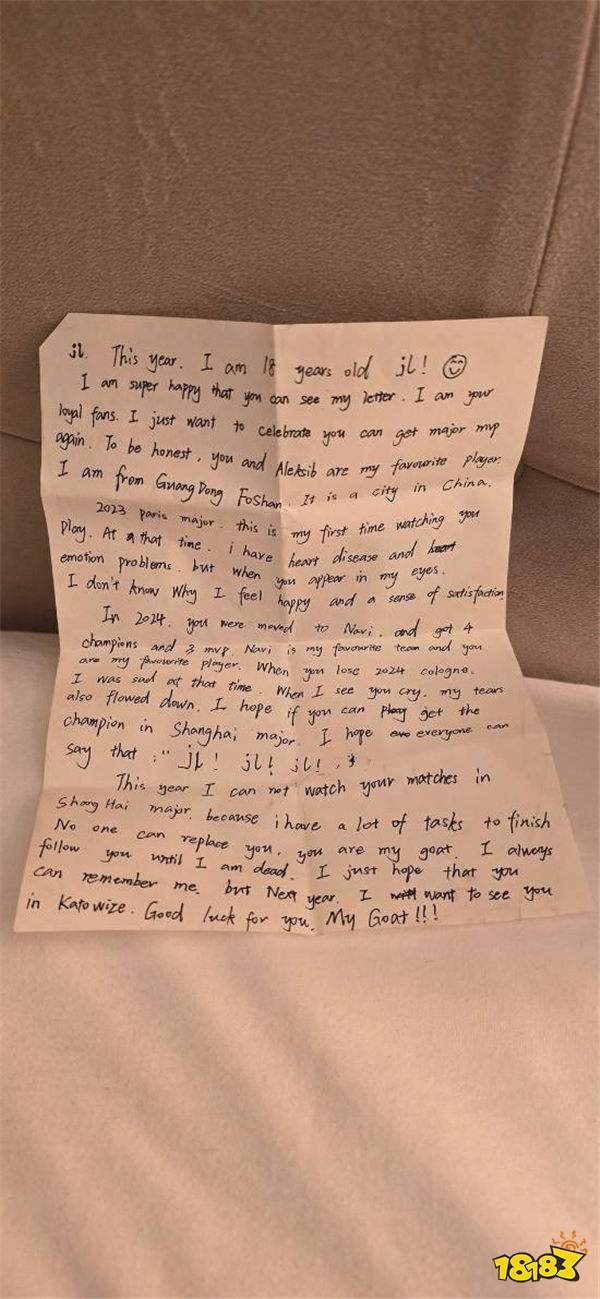 jL. This year. I am 18 years old jL! 
I am super happy that you can see my letter. I am your
loyal fans. I just want to celebrate you can get major mvp
again. To be honest, you and Aleksib are my favourite player.
I am from GuangDong FoShan. It is a city in China.
2023 paris major. this is my first time watching you
play. At that time. i have heart disease and heart
emotion problems. but when you appear in my eyes.
I don't know Why I feel happy and a sense of satisfaction
In 2024. you were moved to Navi. and got 4
champions and 3 mvp. Navi is my favourite team and you
are my favourite player. When you lose 2024 cologne.
I was sad at that time. When I see you cry. my tears
also flowed down. I hope if you can play get the
champion in Shanghai major. I hope eve everyone can
say that :" jL! jL! jL! ."
This year I can not watch your matches in
ShangHai major. because i have a lot of tasks to finish
No one can replace you. you are my goat. I always
follow you until I am dead. I just hope that you
can remember me. but Next year. I will want to see you
in Katowize. Good luck for you. My Goat!!!
18183